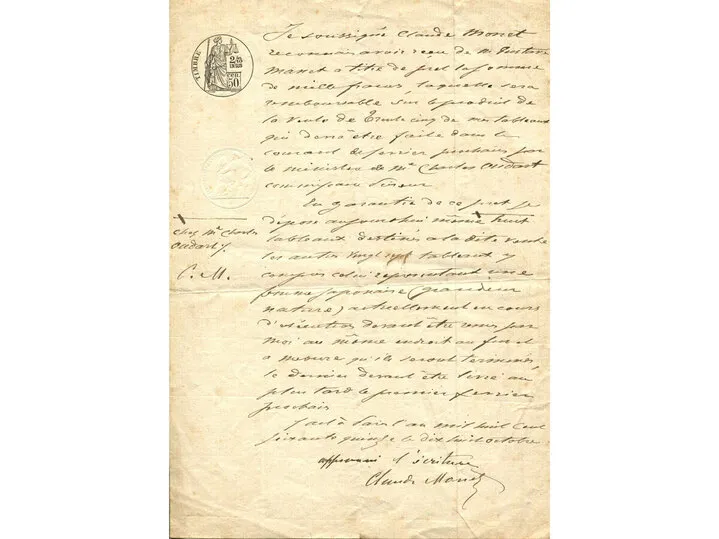 TIMBRE
50
Je soussigné Claude Monet
reconnais avoir reçu de Mr Gustave
Manet à titre de prêt la somme
de mille francs, laquelle sera
remboursable sur le produit de
la vente de trente cinq de mes tableaux
qui devra être faite dans le
courant de février prochain par
le ministère de Mr Charles Oudart
commissaire priseur
En garantie de ce prêt je
dépose aujourd'hui même huit
tableaux destinés à la dite vente
les autres vingt sept tableaux y
compris celui représentant une
femme japonaise (grandeur
nature) actuellement en cours
d'exécution devant être remis par
moi au même endroit au fur et
à mesure qu'ils seront terminés
le dernier devant être livré au
plus tard le premier février
prochain
Fait à Paris l'an mil huit cent
soixante quinze le dix huit octobre
approuvé l'écriture
Claude Monet
chez Mr Charles
Oudart
C. M.